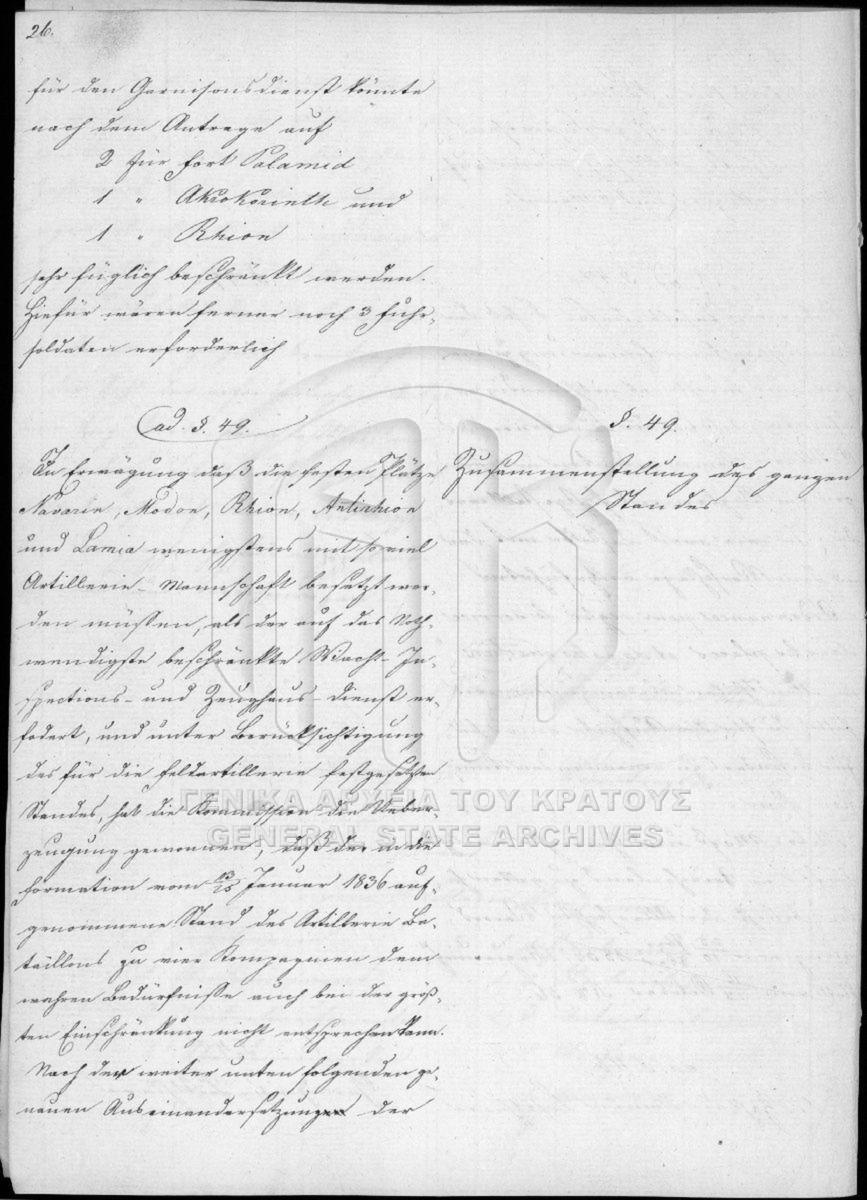 26.
für den Garnisonsdienst könnte
nach dem Antrage auf
2 für Fort Palamid
1 " Akrokorinth und
1 " Rhion
sehr füglich beschränkt werden.
Hiefür wären ferner noch 3 Fuhr-
soldaten erforderlich
ad. §. 49.
In Erwägung daß die festen Plätze
Navarin, Modon, Rhion, Antirhion
und Lamia wenigstens mit so viel
Artillerie-Mannschaft besetzt wer-
den müssen, als der auf das Noth-
wendigste beschränkte Wacht- In-
spections- und Zeughaus-dienst er-
fodert, und unter Berücksichtigung
des für die Feldartillerie festgesetzten
Standes, hat die Kommission die Ueber-
zeugung gewonnen, daß der in die
Formation vom Januar 1836 auf-
genommene Stand des Artillerie Ba-
taillons zu vier Kompagnien dem
wahren Bedürfnisse auch bei der größ-
ten Einschränkung nicht entsprechen kann.
Nach der weiter unten folgenden ge-
nauen Auseinandersetzungen der
§. 49.
Zusammenstellung des ganzen
Standes
ΓΕΝΙΚΑ ΑΡΧΕΙΑ ΤΟΥ ΚΡΑΤΟΥΣ
GENERAL STATE ARCHIVES